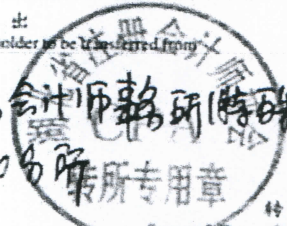 出
holder to be transferred from
省注册会计师
会计师事务所(特殊
CPA
会
分所
转所专用章
转